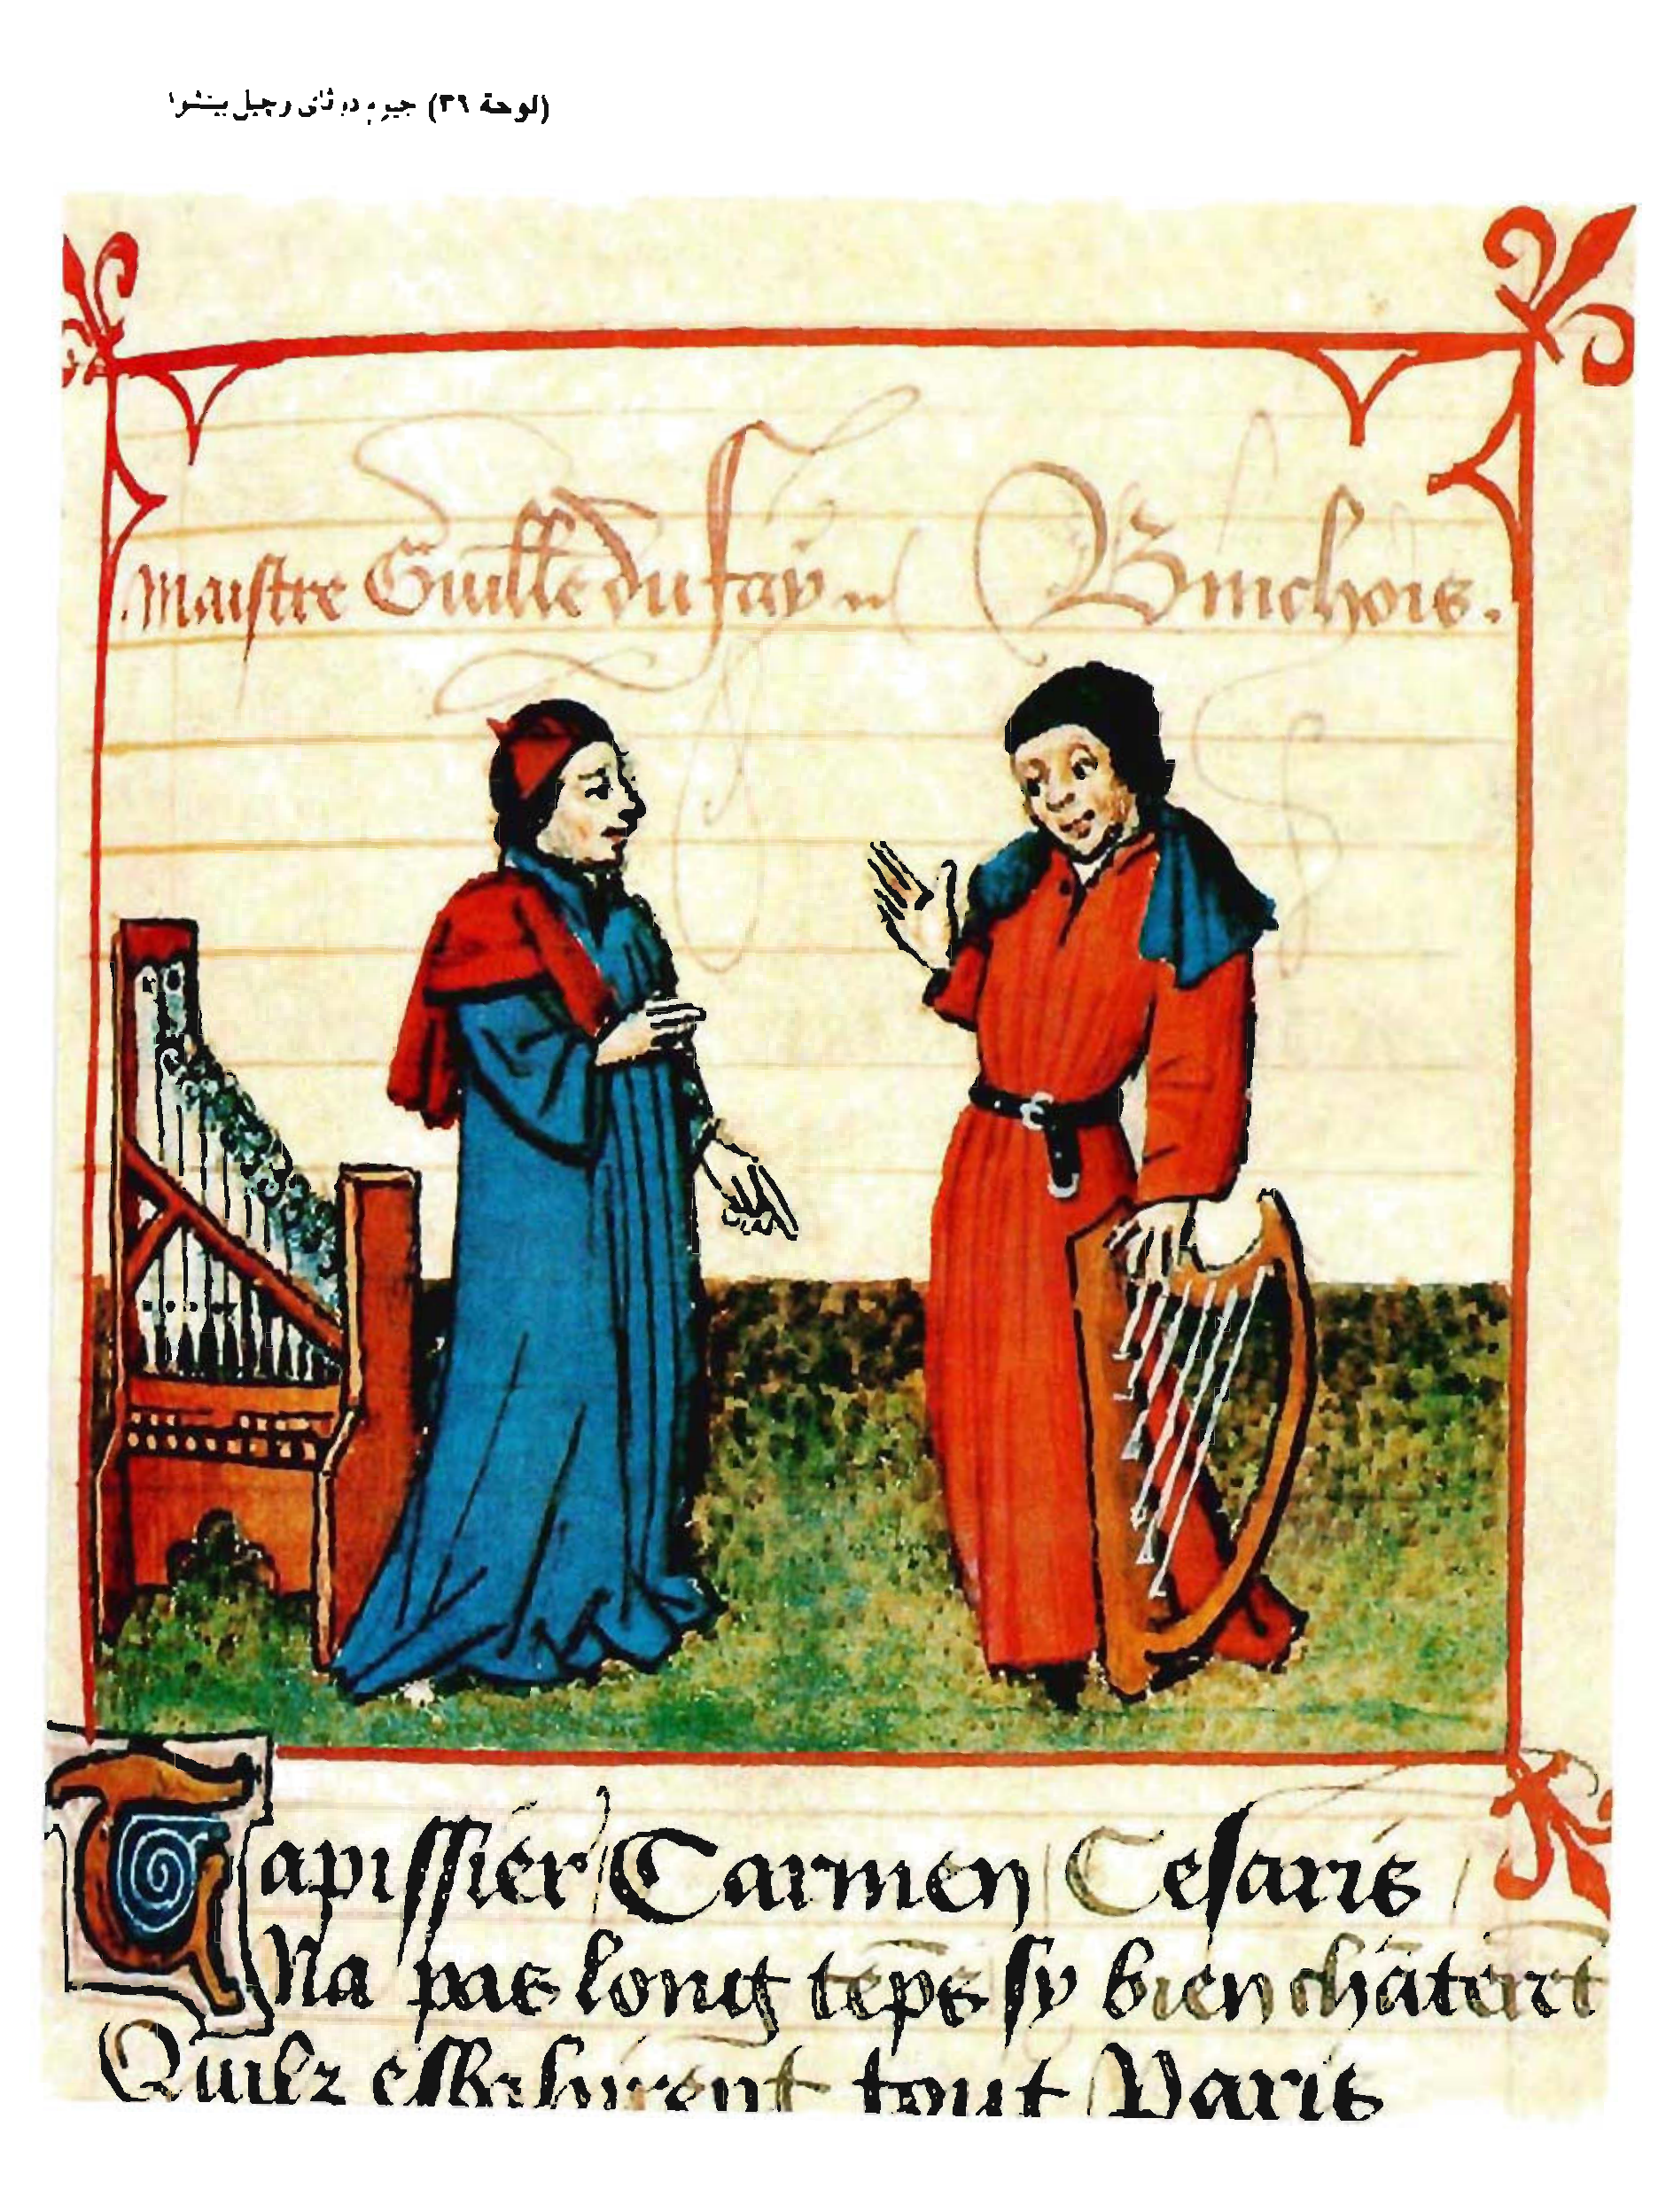 (لوحة ٣٩) جيوم دوفاى وچيل بينشوا
Maistre Guille du fay Binchois.
Tapissier / Carmen / Cesaris /
Na pas long tēps sy bien chāterrt
Quilz esbahirent tout Paris